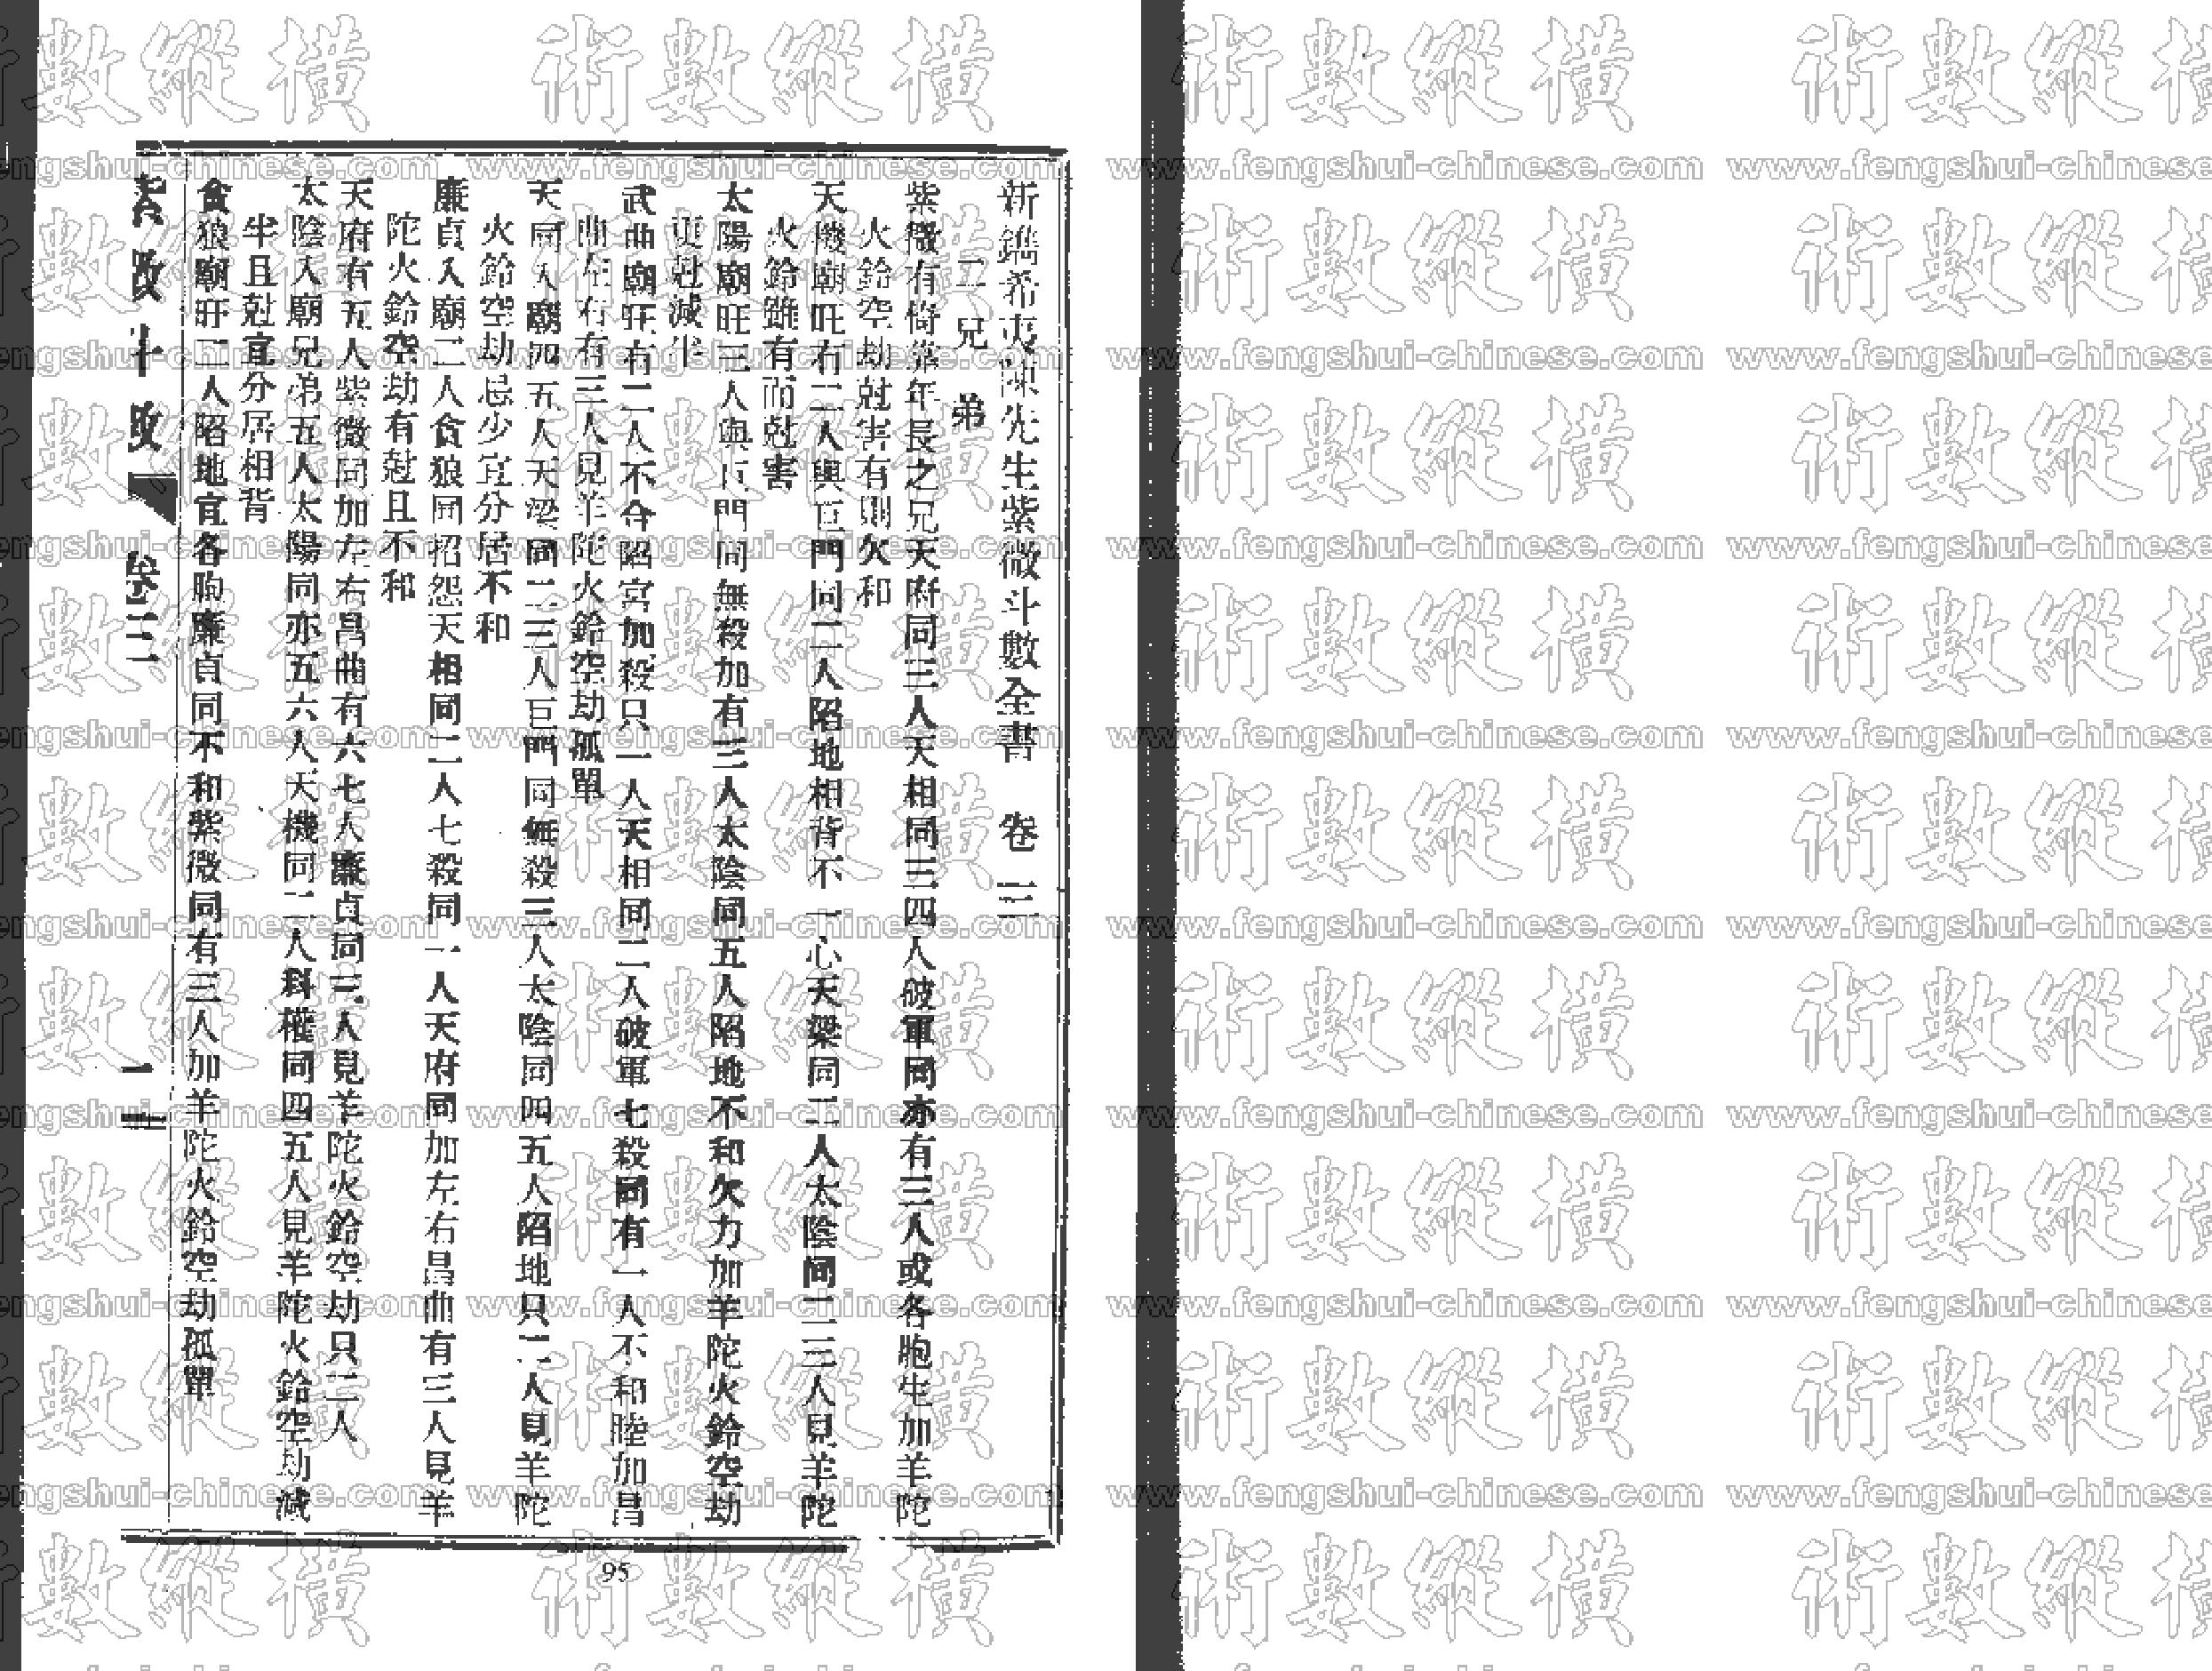 新鐫希夷陳先生紫微斗數全書 卷三
二兄 弟
紫微有倚靠年長之兄天府同三人天相同三四人破軍同亦有三人或各胞生加羊陀
火鈴空劫尅害有則欠和
天機廟旺有二人與巨門同二人陷地相背不一心天梁同二人太陰同二三人見羊陀
火鈴雖有而尅害
太陽廟旺三人與巨門同無殺加有三人太陰同五人陷地不和欠力加羊陀火鈴空劫
更尅減半
武曲廟旺有二人不合陷宮加殺只一人天相同二人破軍七殺同有一人不和睦加昌
曲左右有三人見羊陀火鈴空劫孤單
天同入廟四五人天梁同二三人巨門同無殺三人太陰同四五人陷地只二人見羊陀
火鈴空劫忌少宜分居不和
廉貞入廟二人貪狼同招怨天相同二人七殺同一人天府同加左右昌曲有三人見羊
陀火鈴空劫有尅且不和
天府有五人紫微同加左右昌曲有六七人廉貞同三人見羊陀火鈴空劫只二人
太陰入廟兄弟五人太陽同亦五六人天機同二人科權同四五人見羊陀火鈴空劫減
半且尅宜分居相背
貪狼廟旺二人陷地宜各胞廉貞同不和紫微同有三人加羊陀火鈴空劫孤單
卷三
二
95
術數縱橫
www.fengshui-chinese.com